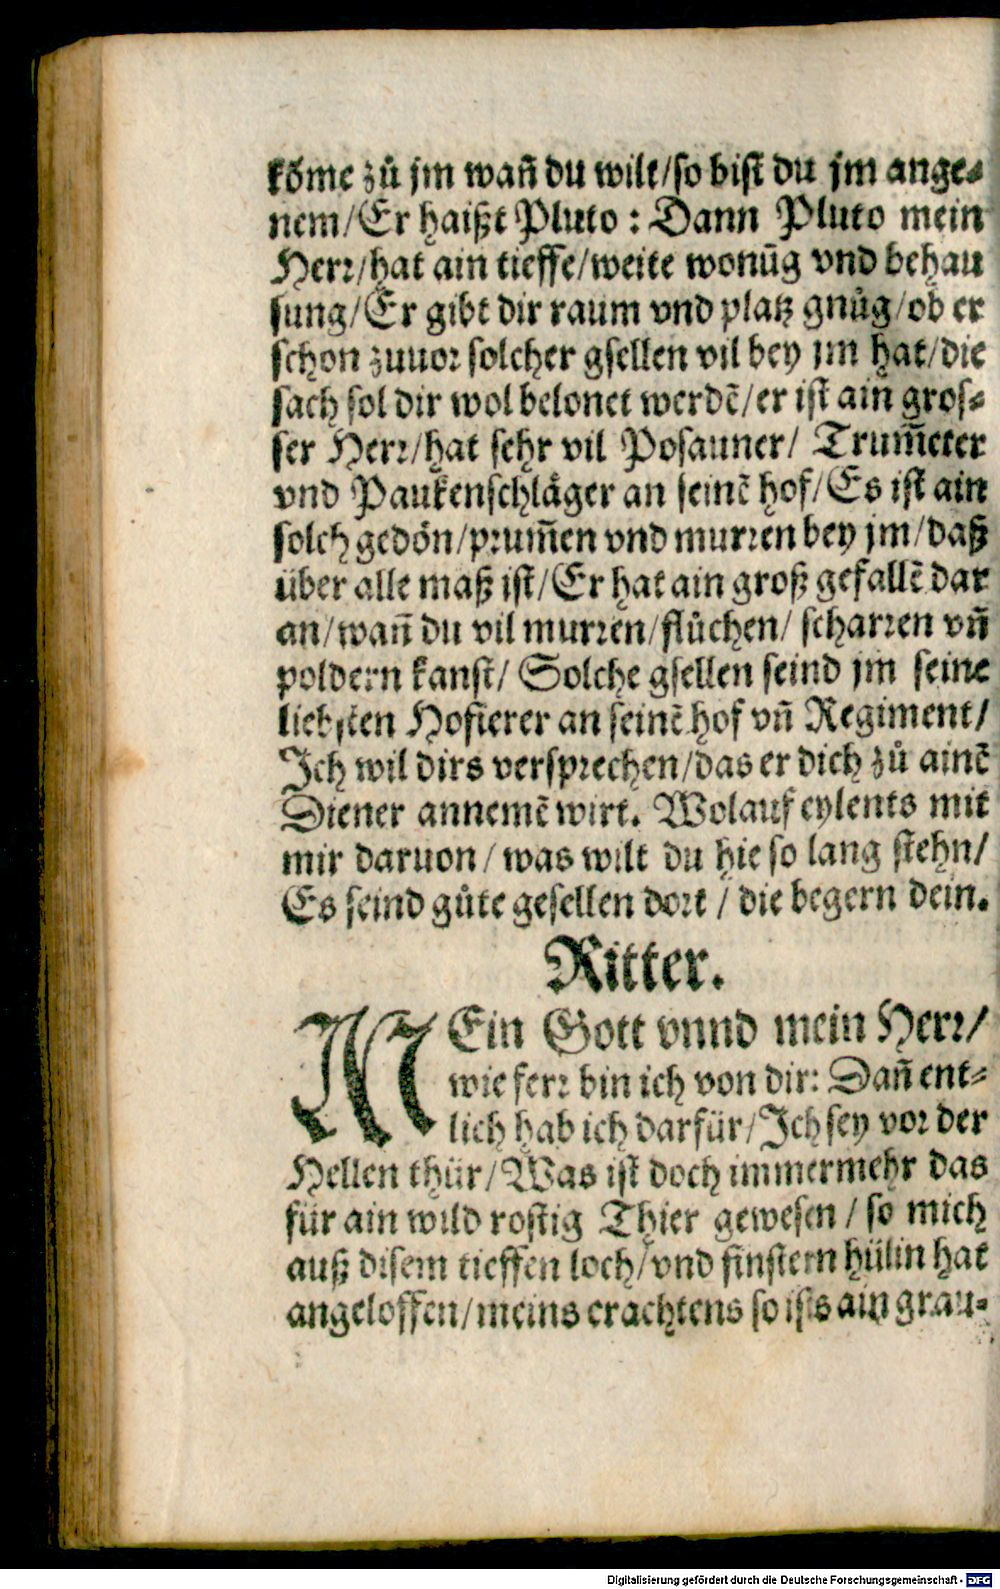 kōme zů jm wañ du wilt/so bist du jm ange⸗
nem/Er haißt Pluto: Dann Pluto mein
Herr/hat ain tieffe/weite wonūg vnd behau
sung/Er gibt dir raum vnd platz gnůg/ob er
schon zuuor solcher gsellen vil bey jm hat/die
sach sol dir wol belonet werdē/er ist ain gros⸗
ser Herr/hat sehr vil Posauner/ Trum̃eter
vnd Paukenschläger an seinē hof/Es ist ain
solch gedön/prum̃en vnd murren bey jm/daß
über alle maß ist/Er hat ain groß gefallē dar
an/wañ du vil murren/flůchen/ scharren vñ
poldern kanst/ Solche gsellen seind jm seine
liebsten Hofierer an seinē hof vñ Regiment/
Ich wil dirs versprechen/das er dich zů ainē
Diener annemē wirt. Wolauf eylents mit
mir daruon/ was wilt du hie so lang stehn/
Es seind gůte gesellen dort/ die begern dein.
Ritter.
MEin Gott vnnd mein Herr/
wie ferr bin ich von dir: Dañ ent⸗
lich hab ich darfür/Ich sey vor der
Hellen thür/Was ist doch immermehr das
für ain wild rostig Thier gewesen/ so mich
auß disem tieffen loch/vnd finstern hülin hat
angeloffen/meins erachtens so ists ain grau⸗
Digitalisierung gefördert durch die Deutsche Forschungsgemeinschaft - DFG